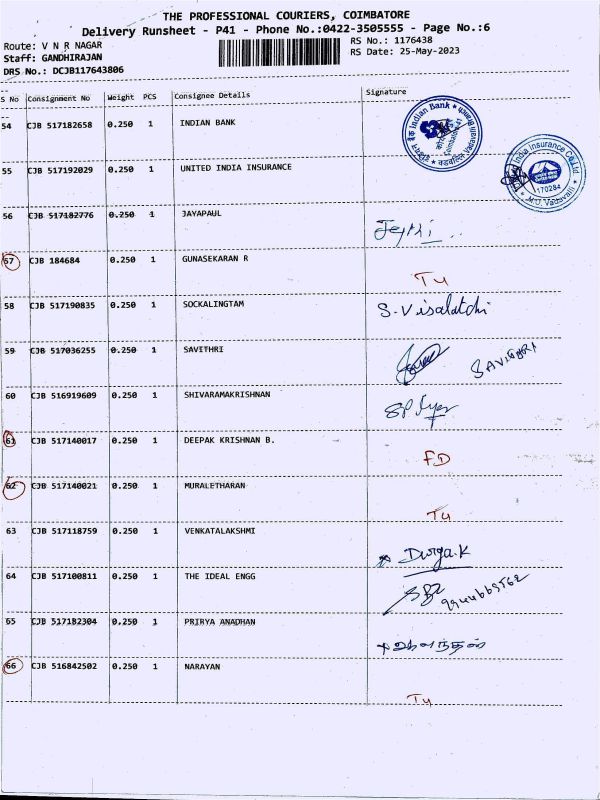 THE PROFESSIONAL COURIERS, COIMBATORE
Delivery Runsheet - P41 - Phone No.:0422-3505555 - Page No.:6
Route: V N R NAGAR
RS No.: 1176438
Staff: GANDHIRAJAN
RS Date: 25-May-2023
DRS No.: DCJB117643806
S No Consignment No Weight PCS Consignee Details Signature
54 CJB 517182658 0.250 1 INDIAN BANK
Indian Bank
Coimbatore-41
55 CJB 517192029 0.250 1 UNITED INDIA INSURANCE
India Insurance Co Ltd
170284
M.O. Vadavalli
56 CJB 517182776 0.250 1 JAYAPAUL
57 CJB 184684 0.250 1 GUNASEKARAN R
T4
58 CJB 517190835 0.250 1 SOCKALINGTAM S. Visalatchi
59 CJB 517036255 0.250 1 SAVITHRI SAVITHRI
60 CJB 516919609 0.250 1 SHIVARAMAKRISHNAN
61 CJB 517140017 0.250 1 DEEPAK KRISHNAN B.
FD
62 CJB 517140021 0.250 1 MURALETHARAN
T4
63 CJB 517118759 0.250 1 VENKATALAKSHMI
Durga.K
64 CJB 517100811 0.250 1 THE IDEAL ENGG
65 CJB 517182304 0.250 1 PRIRYA ANADHAN
66 CJB 516842502 0.250 1 NARAYAN
T4